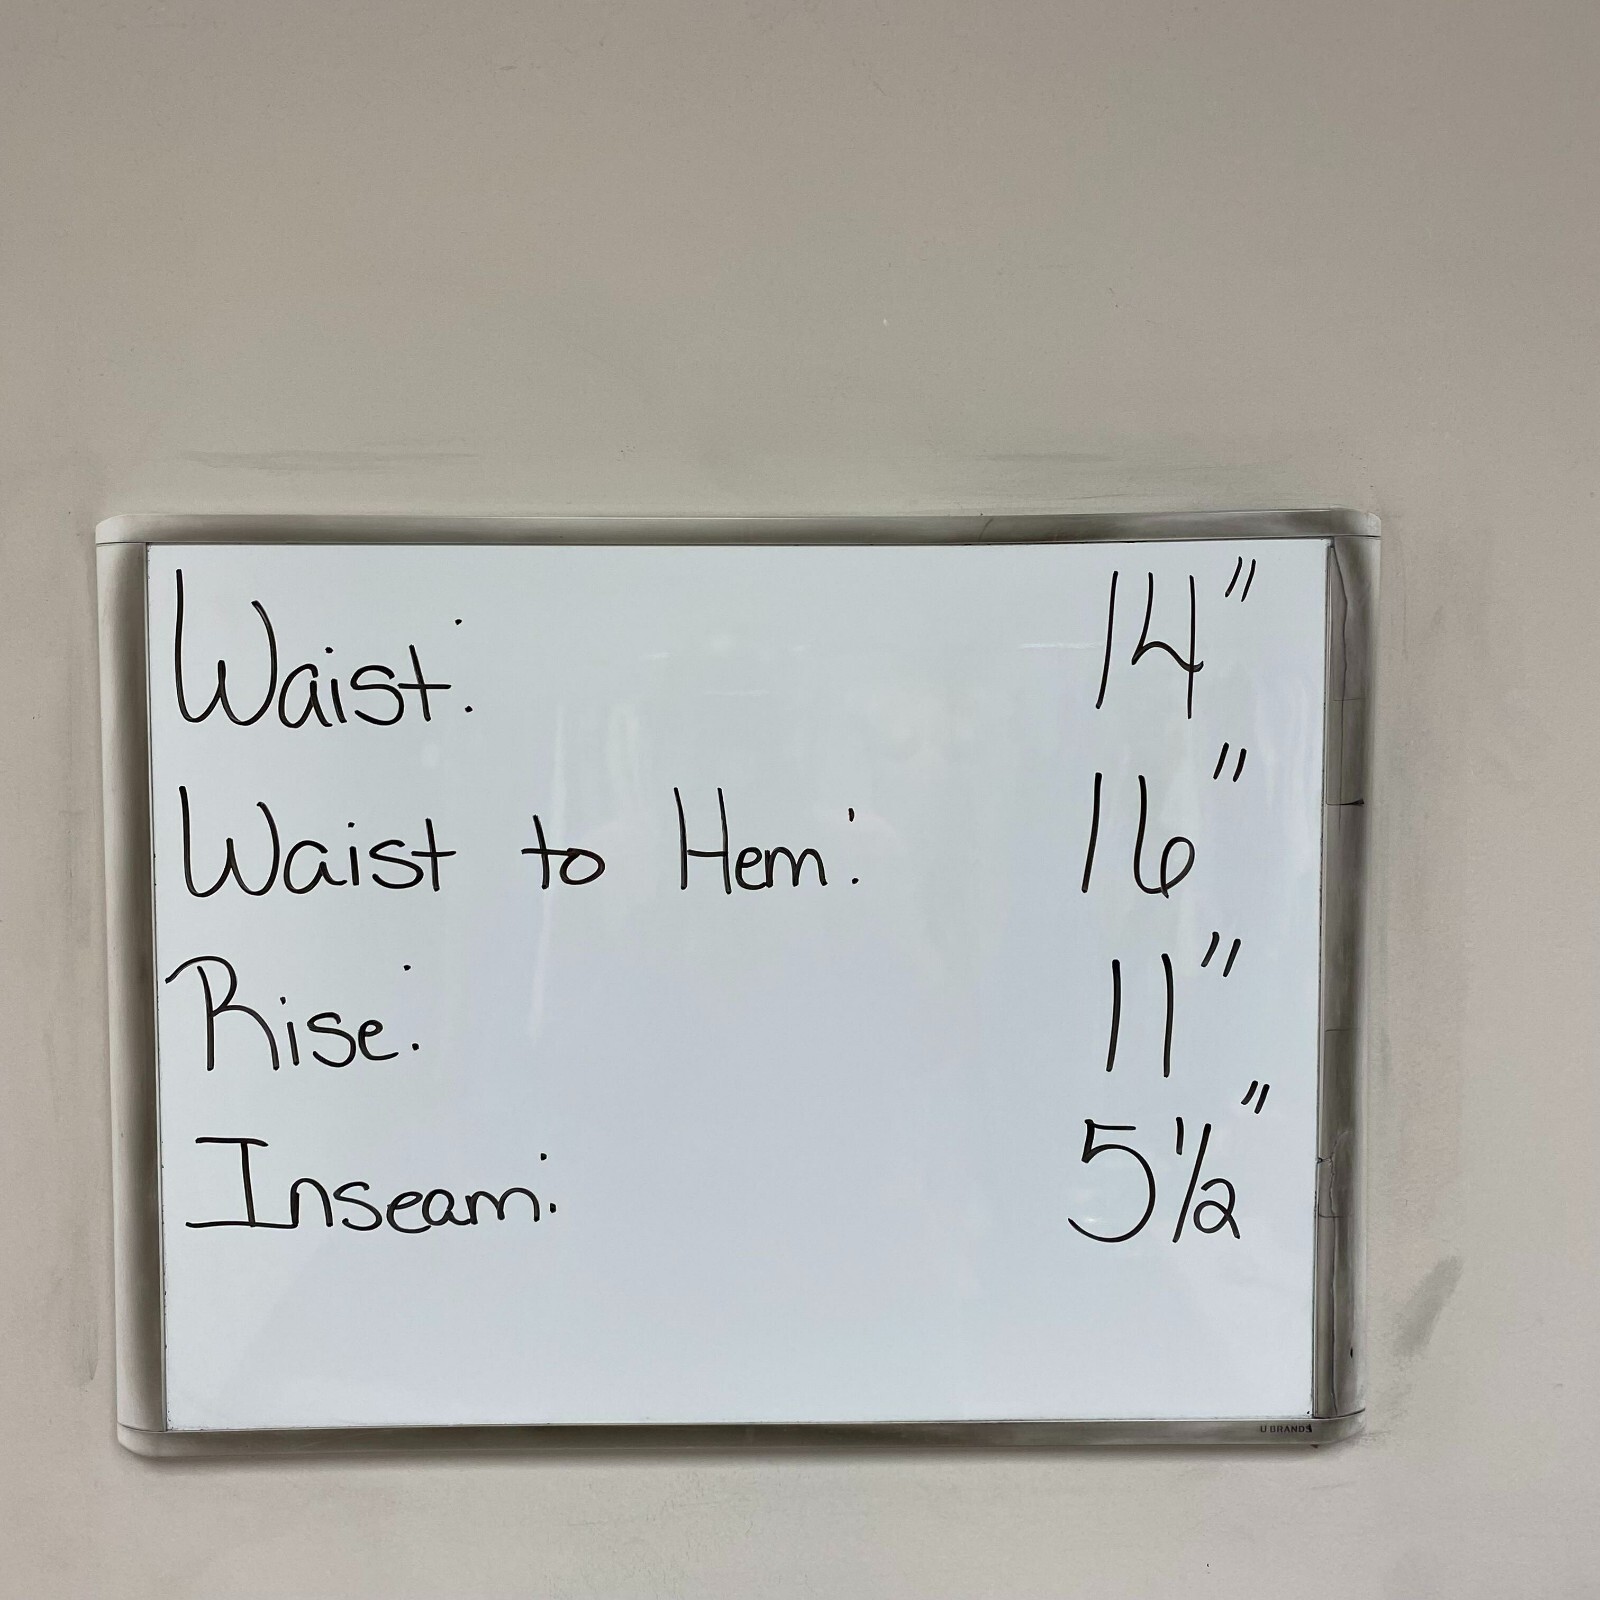 Waist: 14"
Waist to Hem: 16"
Rise: 11"
Inseam: 5 1/2"
U BRANDS